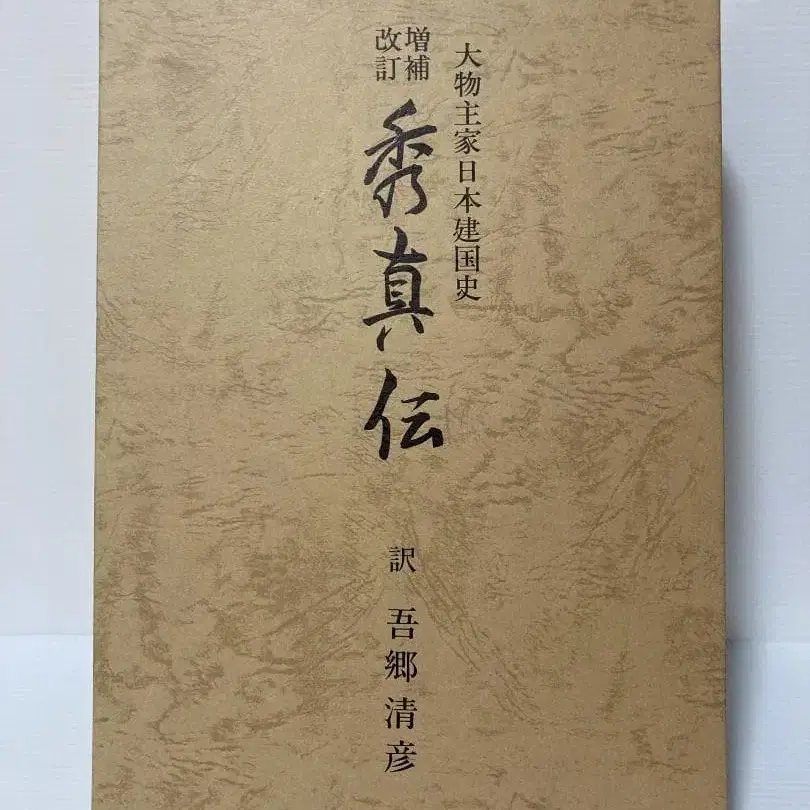 大物主家日本建国史
増補
改訂
秀真伝
訳 吾郷清彦